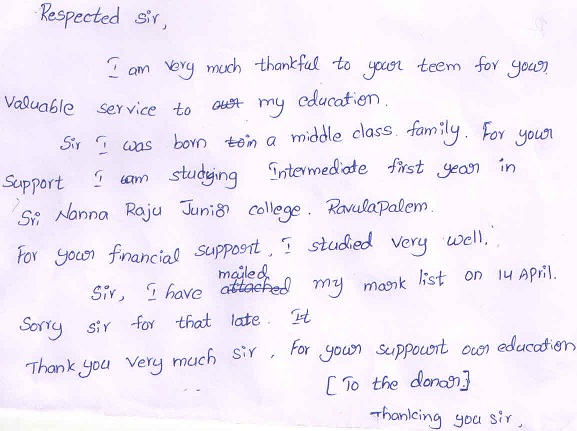 Respected sir,
I am very much thankful to your teem for your
Valuable service to our my education.
Sir I was born to in a middle class. family. For your
Support I am studying Intermediate first year in
Sri Nanna Raju Junior college. Ravulapalem.
For your financial support, I studied very well.
mailed
Sir, I have attached my mark list on 14 April.
Sorry sir for that late. It
Thank you very much sir, For your suppourt our education
[To the donar]
Thanking you sir,